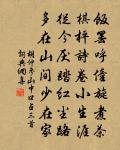 飯罷呼僮旋煮茶
棋枰詩卷小生涯
從今厭踏紅塵路
多在山間少在家
胡仲參山中口占三首